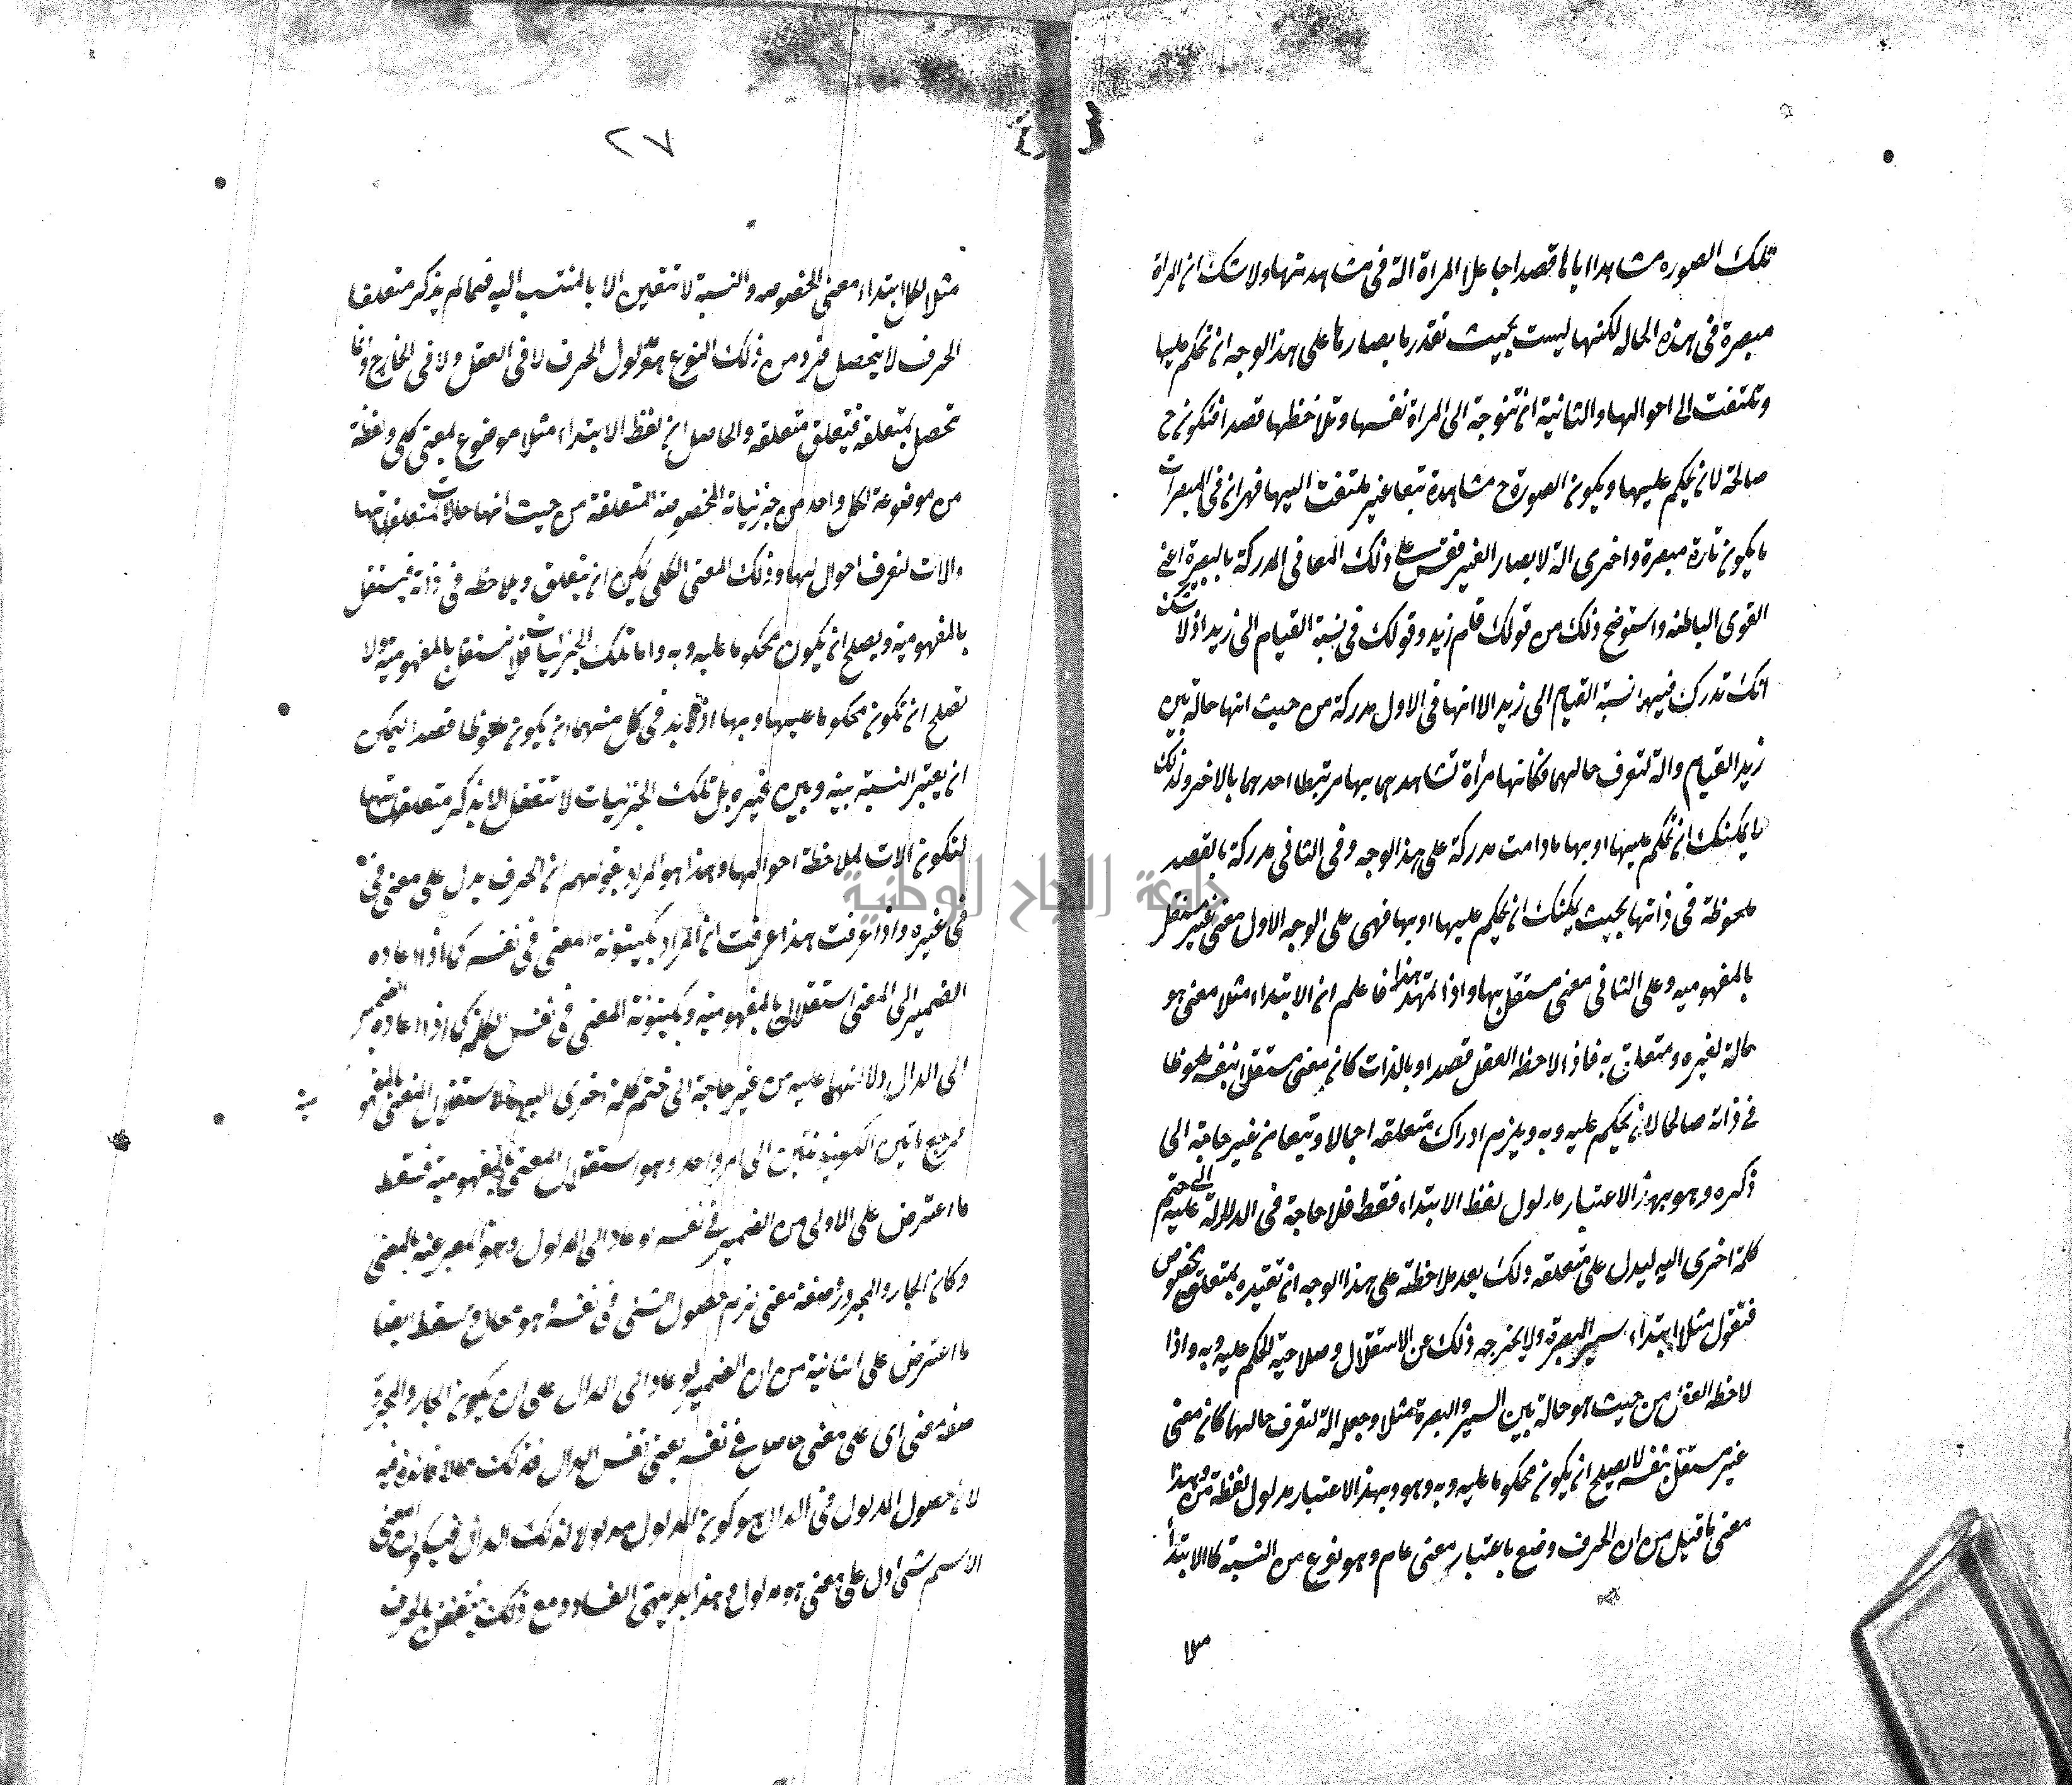 تلك الصوره مشاهدا اياها قصدا جاعلا المراة الة فى مشاهدتها ولا شك ان المراة
مبصرة فى هذه الحاله لكنها ليست بحيث تقدر بابصارها على هذا الوجه ان تحكم عليها
وتلتفت الى احوالها والثانية ان تتوجة الى المراة نفسها وتلاحظها قصدا فتكون ح
صالحة لان يحكم عليها ويكون الصورة ح مشاهدة تبعا غير ملتفت اليها فهران فى المبصرات
ما يكون تارة مبصرة واخرى الة لابصار الغير فقس على ذلك المعانى المدركة بالبصيرة اعنى
القوى الباطنه واستوضح ذلك من قولك قام زيد وقولك فى نسبة القيام الى زيد اذ لا شك
انك تدرك فيهما نسبة القيام الى زيد الا انها فى الاول مدركة من حيث انها حالة بين
زيد القيام والة لتعرف حالهما فكانها مرأة تشاهدهما بها مرتبطا احدهما بالاخر ولذلك
ما يمكنك ان تحكم عليها او بها ما دامت مدركة على هذا الوجه وفى الثانى مدركة بالقصد
ملحوظة فى ذاتها بحيث يمكنك ان يحكم عليها او بها فهى على الوجه الاول معنى غير مستقل
بالمفهوميه وعلى الثانى معنى مستقل بها واذا تمهد هذا فاعلم ان الابتداء مثلا معنى هو
حالة لغيره ومتعلق به فاذا لاحظه العقل قصدا وبالذات كان معنى مستقلا بنفسه ملحوظا
فى ذاته صالحا لان يحكم عليه وبه ويلزم ادراك متعلقه اجمالا وتبعا من غير حاجة الى
ذكره وهو بهذا الاعتبار مدلول لفظ الابتداء فقط فلا حاجة فى الدلالة عليه الى ختم
كلمة اخرى اليه ليدل على متعلقه ولك بعد ملاحظة على هذا الوجه ان تقيده بمتعلق مخصوص
فتقول مثلا ابتداء سير البصرة ولا يخرجه ذلك عن الاستقلال وصلاحية للحكم عليه وبه واذا
لاحظه العقل من حيث هو حالة بين السير والبصرة مثلا وجعله الة لتعرف حالهما كان معنى
غير مستقل بنفسه لا يصلح ان يكون محكوما عليه وبه وهو بهذا الاعتبار مدلول لفظة من وهذا
معنى ما قيل من ان الحرف وضع باعتبار معنى عام وهو نوع من النسبة كالابتدأ
مثلا
٢٧
مثلا لكل ابتداء معنى الخصوصه والنسبة لا تتعين الا بالمنتسب اليه فما لم يذكر متعلقا
الحرف لا يتحصل فرد من ذلك النوع هو مدلول الحرف لا فى العقل ولا فى الخارج وانما
تحصل بمتعلقه فيتعلق متعلقه والحاصل ان لفظ الابتداء مثلا موضوع لمعنى كلى ولفظة
من موضوعة لكل واحد من جزئياته المخصوصة المتعلقة من حيث انها حالات لمتعلقاتها
والات لتعرف احوالها وذلك المعنى الكلى يمكن ان يتعلق ويلاحظه فى ذاته فيستقل
بالمفهومية ويصلح ان يكون محكوما عليه وبه واما تلك الجزئيات فلا تستقل بالمفهومية ولا
تصلح ان تكون محكوما عليها وبها اذ لا بد فى كل منهما ان يكون ملحوظا قصدا ليمكن
ان يعتبر النسبة بينه وبين غيره بل تلك الجزئيات لا تتعقل الا بذكر متعلقاتها
لتكون الات لملاحظة احوالها وهذا هو المراد بقولهم ان الحرف يدل على معنى فى
فى غيره واذا عرفت هذا عرفت ان المراد بكينونة المعنى فى نفسه كما اذا اعاده
الضمير الى المعنى استقلاله بالمفهومية وبكينونة المعنى فى نفس الكلمة كما اذا اعاده الضمير
الى الدال دلالتها عليه من غير حاجة الى ختم كلمة اخرى اليها لاستقلال المعنى بالمفهو
مية
فمرجع هاتين الكينونتين الى امر واحد وهو استقلال المعنى بالمفهومية فسقط
ما اعترض على الاولى من الضمير فى نفسه لو عاد الى المدلول وهو المعبر عنه بالمعنى
وكان الجار والمجرور صفة معنى لزم حصول الشئ فى نفسه وهو محال وسقط ايضا
ما اعترض على الثانية من ان الضمير لو عاد الى الدال على ان يكون الجار والمجرور
صفة معنى اى على معنى حاصل فى نفسه يعنى نفس الدال فذلك مما لا فائدة فيه
لان حصول المدلول فى الدال هو كون المدلول مدلولا لذلك الدال فيكون المعنى
الاسم شئ دل على معنى هو مدلول وهذا بديهى الفساد ومع ذلك ينتقض بالحرف
جامعة النجاح الوطنية